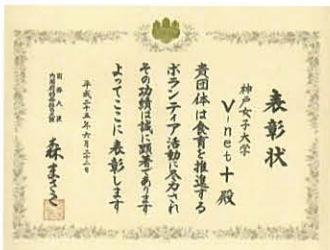 表彰状
神戸女子大学
V-net十殿
貴団体は食育を推進する
ボランティア活動に尽力され
その功績は誠に顕著であります
よってここに表彰します
平成二十五年六月二十二日
国務大臣
森まさこ